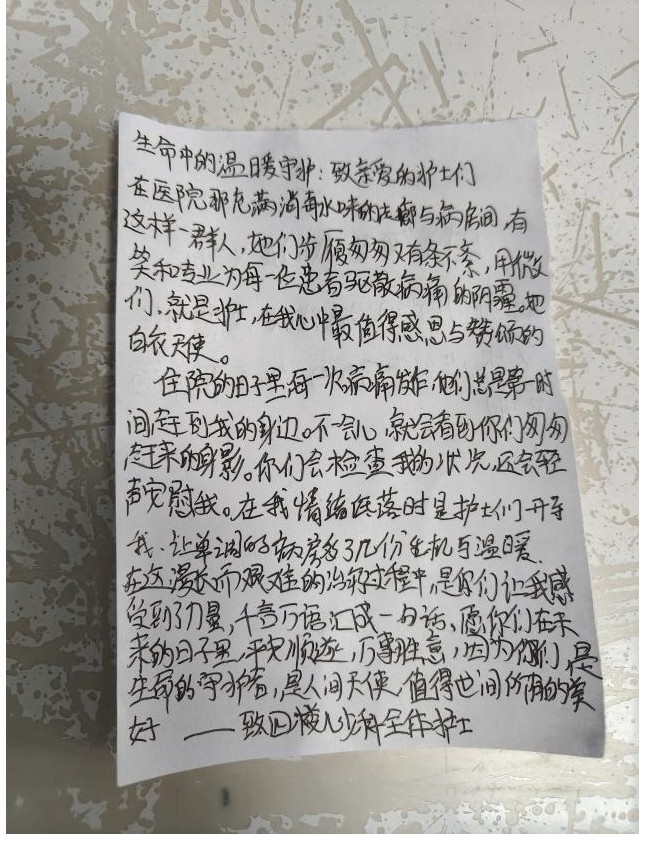 生命中的温暖守护：致亲爱的护士们
在医院那充满消毒水味的走廊与病房间，有
这样一群人，她们步履匆匆又有条不紊，用微
笑和专业为每一位患者驱散病痛的阴霾。她
们、就是护士，在我心中最值得感恩与赞颂的
白衣天使。
住院的日子里每一次病痛发作，他们总是第一时
间赶到我的身边。不一会儿，就会看到你们匆匆
赶来的身影。你们会检查我的状况，还会轻
声安慰我。在我情绪低落时是护士们开导
我、让单调的病房多了几份生机与温暖、
在这漫长而艰难的治疗过程中，是你们让我感
受到了力量，千言万语汇成一句话、愿你们在未
来的日子里，平安顺遂，万事胜意，因为你们是
生命的守护者，是人间天使，值得世间所有的美
好 ——致四楼儿少科全体护士